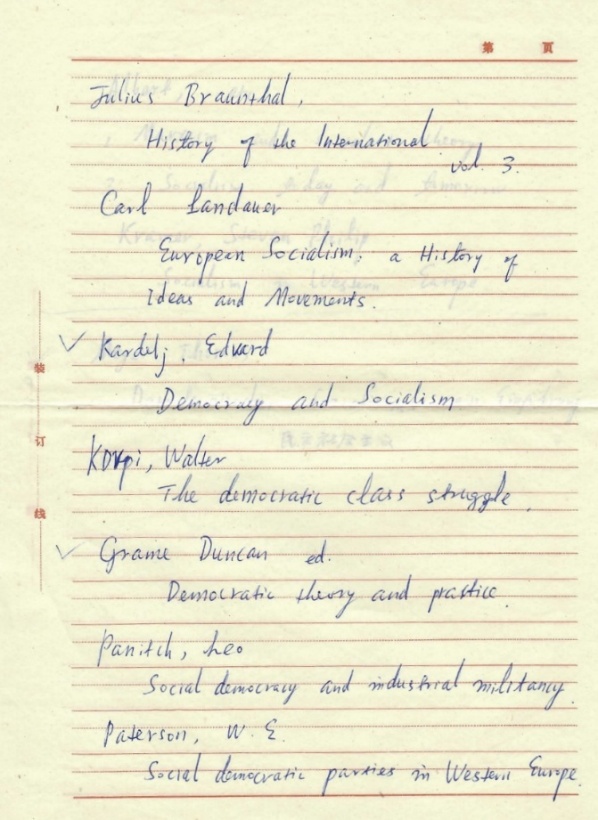 第 页
Julius Braunthal,
History of the International
vol. 3.
Carl Landauer
European Socialism: a History of
Ideas and Movements.
✓ Kardelj, Edvard
Democracy and Socialism
装
订
线
Korpi, Walter
The democratic class struggle.
✓ Grame Duncan ed.
Democratic theory and practice.
Panitch, Leo
Social democracy and industrial militancy.
Paterson, W. E.
Social democratic parties in Western Europe.